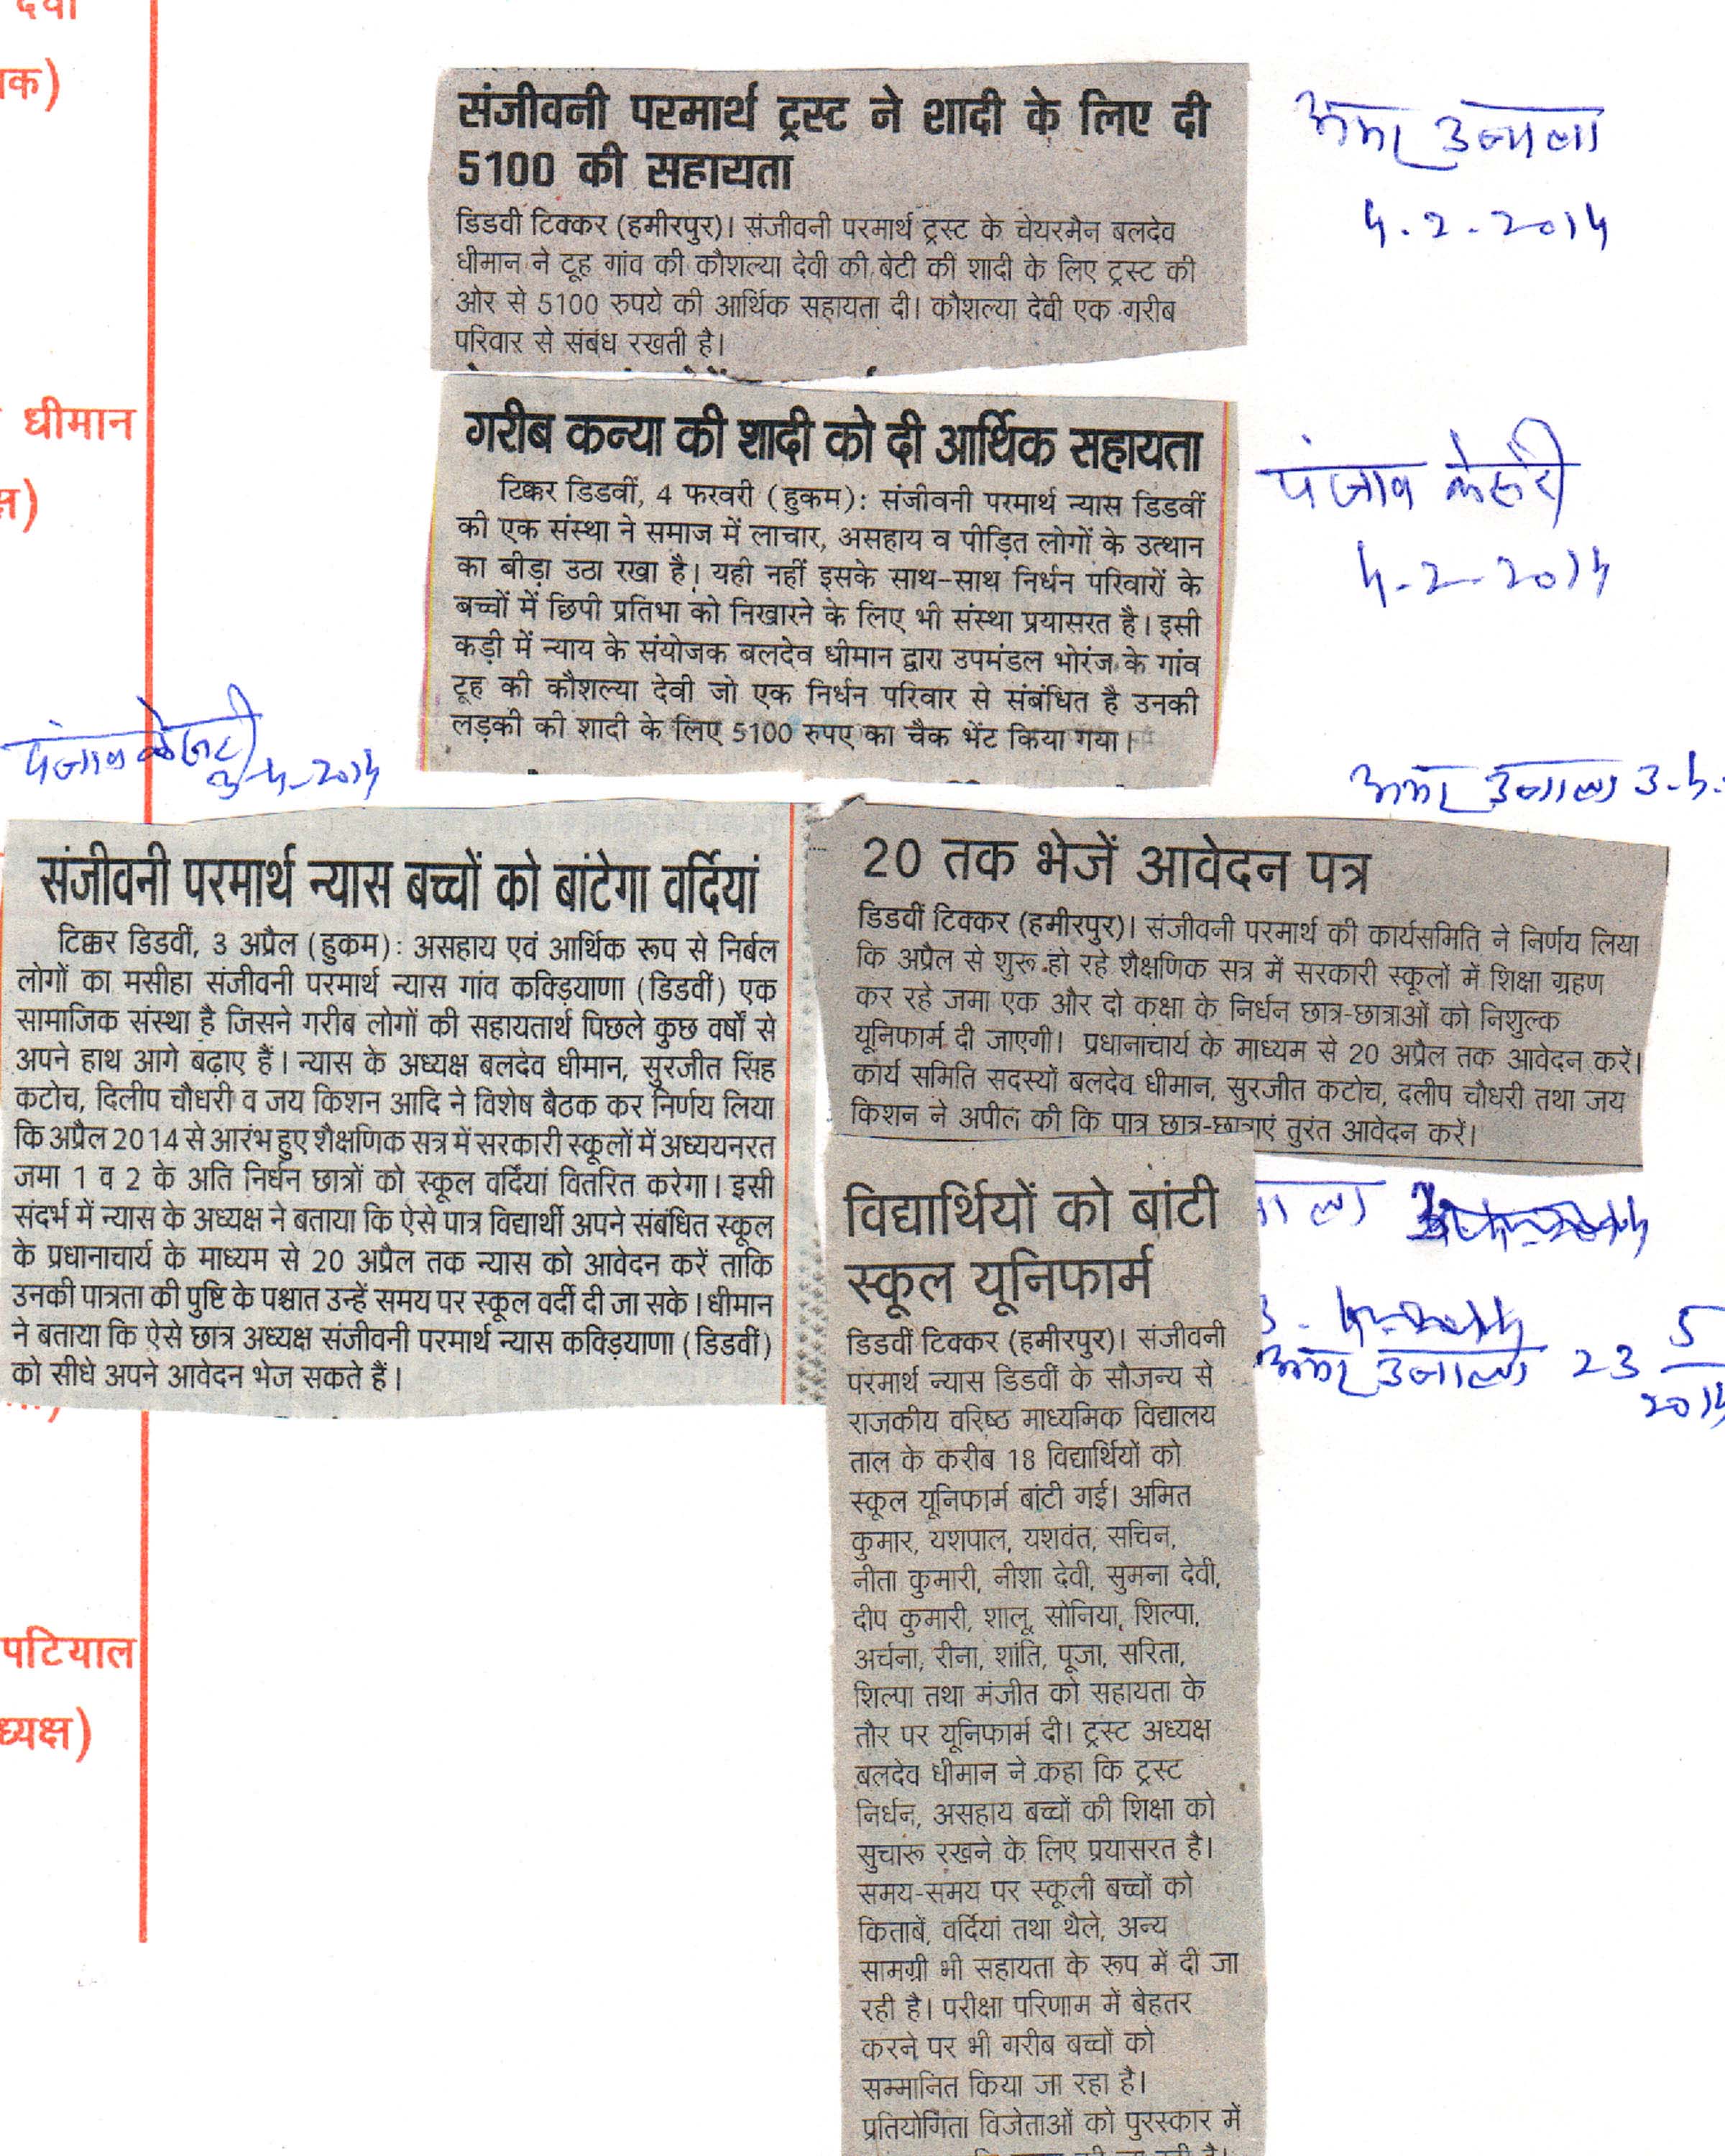 देवी
क)
धीमान
पटियाल
ध्यक्ष)
संजीवनी परमार्थ ट्रस्ट ने शादी के लिए दी
5100 की सहायता
डिडवी टिक्कर (हमीरपुर)। संजीवनी परमार्थ ट्रस्ट के चेयरमैन बलदेव
धीमान ने टूह गांव की कौशल्या देवी की बेटी की शादी के लिए ट्रस्ट की
ओर से 5100 रुपये की आर्थिक सहायता दी। कौशल्या देवी एक गरीब
परिवार से संबंध रखती है।
अमर उजाला
4.2.2014
गरीब कन्या की शादी को दी आर्थिक सहायता
टिक्कर डिडवीं, 4 फरवरी (हुकम): संजीवनी परमार्थ न्यास डिडवीं
की एक संस्था ने समाज में लाचार, असहाय व पीड़ित लोगों के उत्थान
का बीड़ा उठा रखा है। यही नहीं इसके साथ-साथ निर्धन परिवारों के
बच्चों में छिपी प्रतिभा को निखारने के लिए भी संस्था प्रयासरत है। इसी
कड़ी में न्याय के संयोजक बलदेव धीमान द्वारा उपमंडल भोरंज के गांव
टूह की कौशल्या देवी जो एक निर्धन परिवार से संबंधित है उनकी
लड़की की शादी के लिए 5100 रुपए का चैक भेंट किया गया।
पंजाब केसरी
4-2-2014
पंजाब केसरी
3-4-2014
संजीवनी परमार्थ न्यास बच्चों को बांटेगा वर्दियां
टिक्कर डिडवीं, 3 अप्रैल (हुकम): असहाय एवं आर्थिक रूप से निर्बल
लोगों का मसीहा संजीवनी परमार्थ न्यास गांव कक्ड़ियाणा (डिडवीं) एक
सामाजिक संस्था है जिसने गरीब लोगों की सहायतार्थ पिछले कुछ वर्षों से
अपने हाथ आगे बढ़ाए हैं। न्यास के अध्यक्ष बलदेव धीमान, सुरजीत सिंह
कटोच, दिलीप चौधरी व जय किशन आदि ने विशेष बैठक कर निर्णय लिया
कि अप्रैल 2014 से आरंभ हुए शैक्षणिक सत्र में सरकारी स्कूलों में अध्ययनरत
जमा 1 व 2 के अति निर्धन छात्रों को स्कूल वर्दियां वितरित करेगा। इसी
संदर्भ में न्यास के अध्यक्ष ने बताया कि ऐसे पात्र विद्यार्थी अपने संबंधित स्कूल
के प्रधानाचार्य के माध्यम से 20 अप्रैल तक न्यास को आवेदन करें ताकि
उनकी पात्रता की पुष्टि के पश्चात उन्हें समय पर स्कूल वर्दी दी जा सके। धीमान
ने बताया कि ऐसे छात्र अध्यक्ष संजीवनी परमार्थ न्यास कक्ड़ियाणा (डिडवीं)
को सीधे अपने आवेदन भेज सकते हैं।
अमर उजाला 3.4.
20 तक भेजें आवेदन पत्र
डिडवीं टिक्कर (हमीरपुर)। संजीवनी परमार्थ की कार्यसमिति ने निर्णय लिया
कि अप्रैल से शुरू हो रहे शैक्षणिक सत्र में सरकारी स्कूलों में शिक्षा ग्रहण
कर रहे जमा एक और दो कक्षा के निर्धन छात्र-छात्राओं को निशुल्क
यूनिफार्म दी जाएगी। प्रधानाचार्य के माध्यम से 20 अप्रैल तक आवेदन करें।
कार्य समिति सदस्यों बलदेव धीमान, सुरजीत कटोच, दलीप चौधरी तथा जय
किशन ने अपील की कि पात्र छात्र-छात्राएं तुरंत आवेदन करें।
विद्यार्थियों को बांटी
स्कूल यूनिफार्म
डिडवीं टिक्कर (हमीरपुर)। संजीवनी
परमार्थ न्यास डिडवीं के सौजन्य से
राजकीय वरिष्ठ माध्यमिक विद्यालय
ताल के करीब 18 विद्यार्थियों को
स्कूल यूनिफार्म बांटी गई। अमित
कुमार, यशपाल, यशवंत, सचिन,
नीता कुमारी, नीशा देवी, सुमना देवी,
दीप कुमारी, शालू, सोनिया, शिल्पा,
अर्चना, रीना, शांति, पूजा, सरिता,
शिल्पा तथा मंजीत को सहायता के
तौर पर यूनिफार्म दी। ट्रस्ट अध्यक्ष
बलदेव धीमान ने कहा कि ट्रस्ट
निर्धन, असहाय बच्चों की शिक्षा को
सुचारू रखने के लिए प्रयासरत है।
समय-समय पर स्कूली बच्चों को
किताबें, वर्दियां तथा थैले, अन्य
सामग्री भी सहायता के रूप में दी जा
रही है। परीक्षा परिणाम में बेहतर
करने पर भी गरीब बच्चों को
सम्मानित किया जा रहा है।
प्रतियोगिता विजेताओं को पुरस्कार में
अमर उजाला 23 5
2014